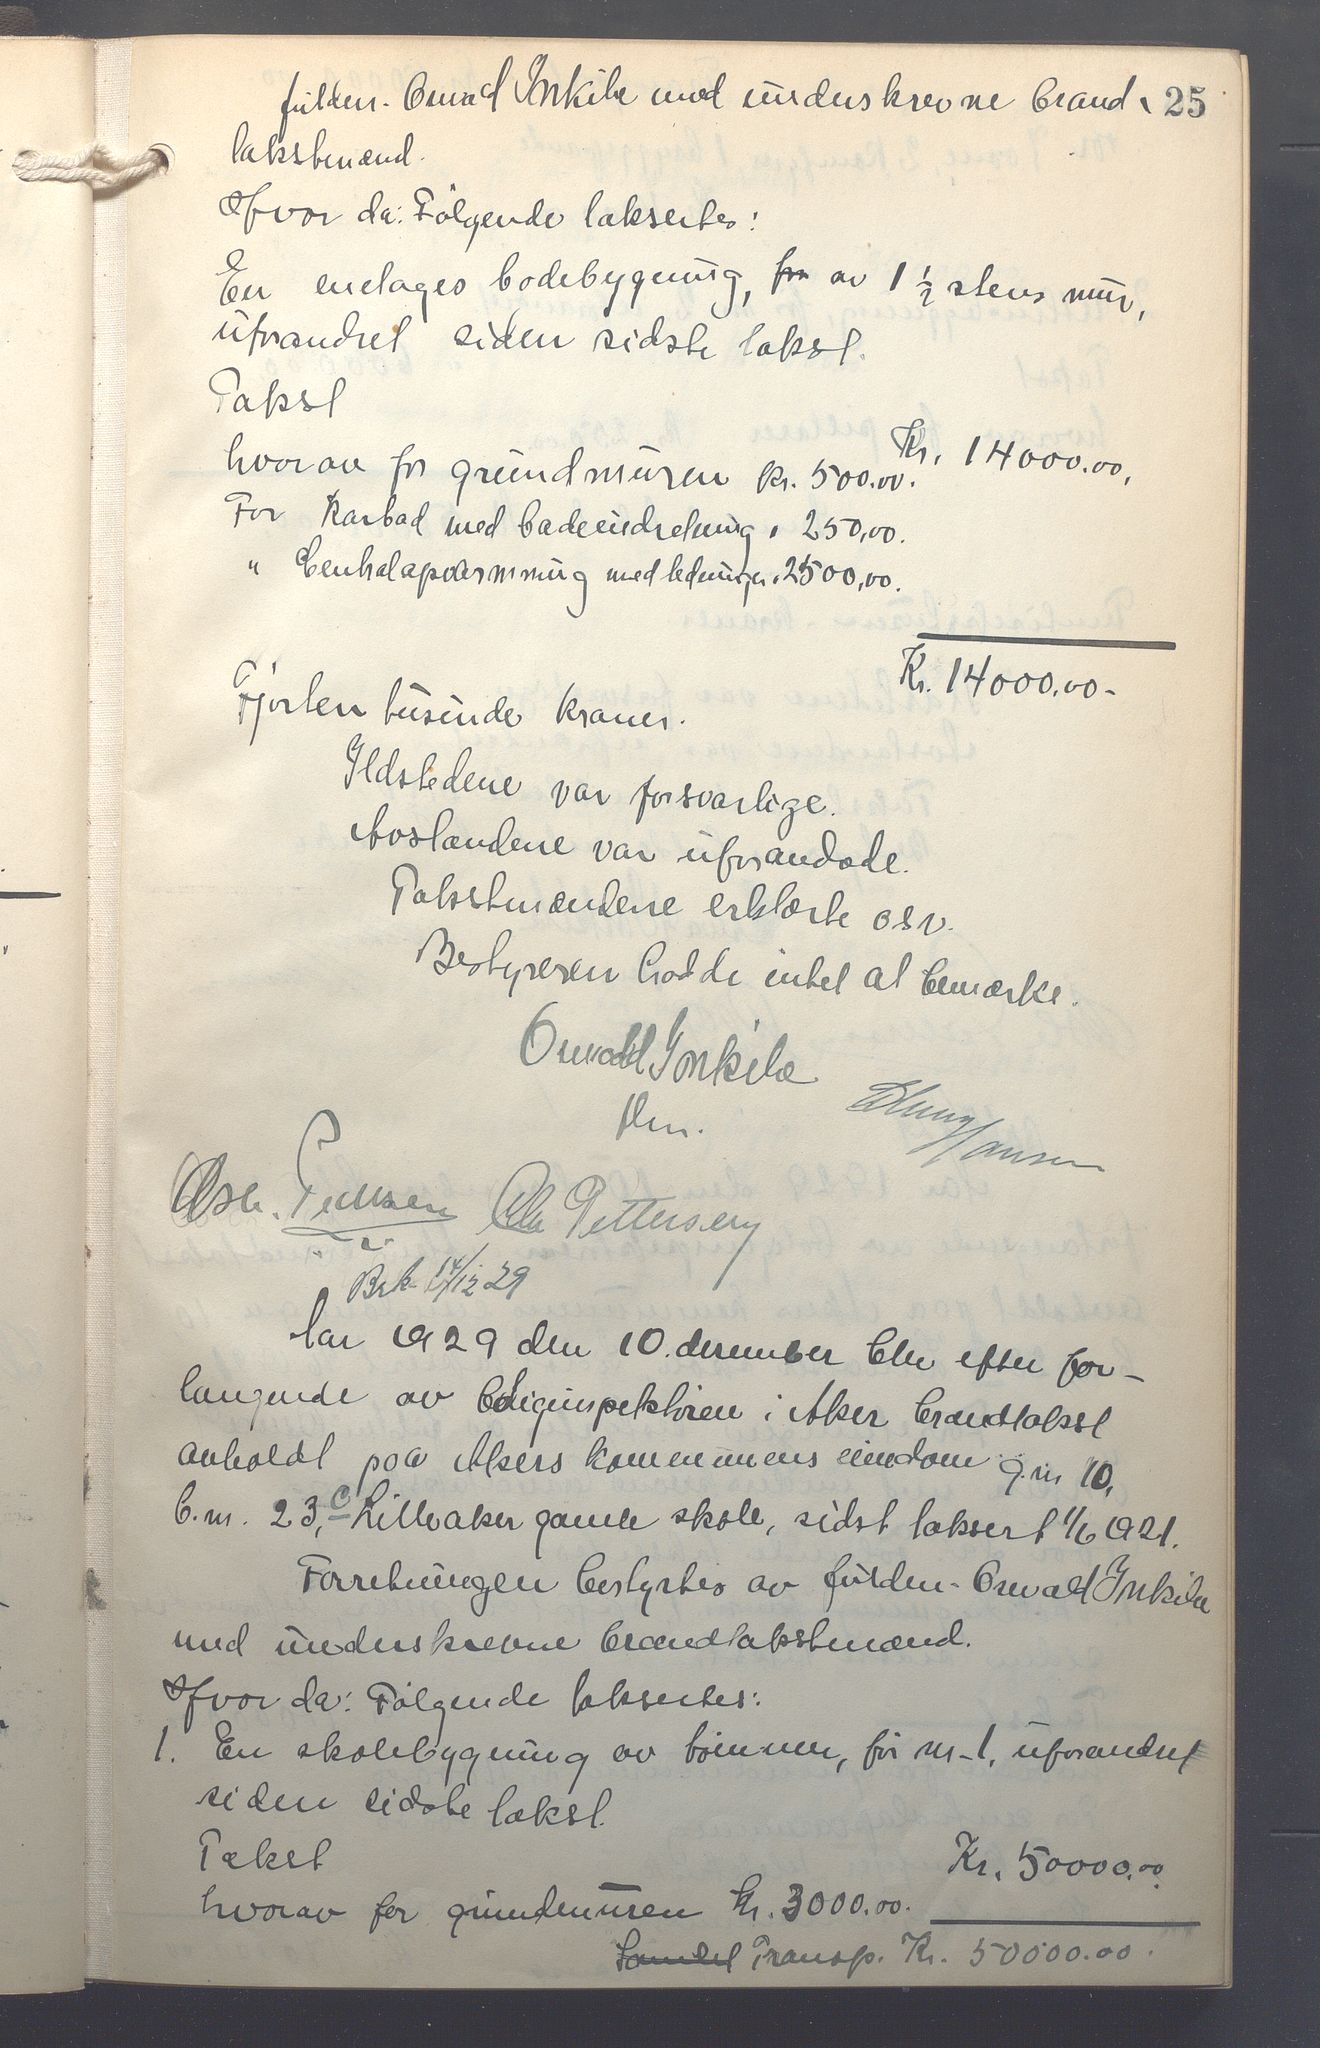 25
fuldm. Osvald Inkila med underskrevne brand-
takstmænd.
Hvor da: Følgende taksertes:
En enetages bodebygning, av 1 1/2 stens mur,
uforandret siden sidste takst.
Takst Kr. 14000.00,
hvorav for grundmuren kr. 500.00.
For Karbad med badeindretning " 250,00.
" Centralopvarmning med ledninger " 2500,00.
Kr. 14000.00-
Fjorten tusinde kroner.
Ildstedene var forsvarlige.
Avstandene var uforandrede.
Takstmændene erklærte osv.
Bestyreren hadde intet at bemærke.
Osvald Inkila
fm.
Hansen
Pettersen
Brk. 14/12 29
Aar 1929 den 10. desember blev efter for-
langende av boliginspektøren i Aker brandtakst
avholdt paa Akers kommunes eiendom g.nr 10,
b.nr. 23, c Lilleaker gamle skole, sidst taksert 1/6 1921.
Forretningen bestyrtes av fuldm. Osvald Inkila
med underskrevne brandtakstmænd.
Hvor da: Følgende taksertes:
1. En skolebygning av tømmer, før nr-1, uforandret
siden sidste takst.
Takst Kr. 50000.00
hvorav for grundmuren Kr. 3000.00.
Transp. Kr. 50000.00.